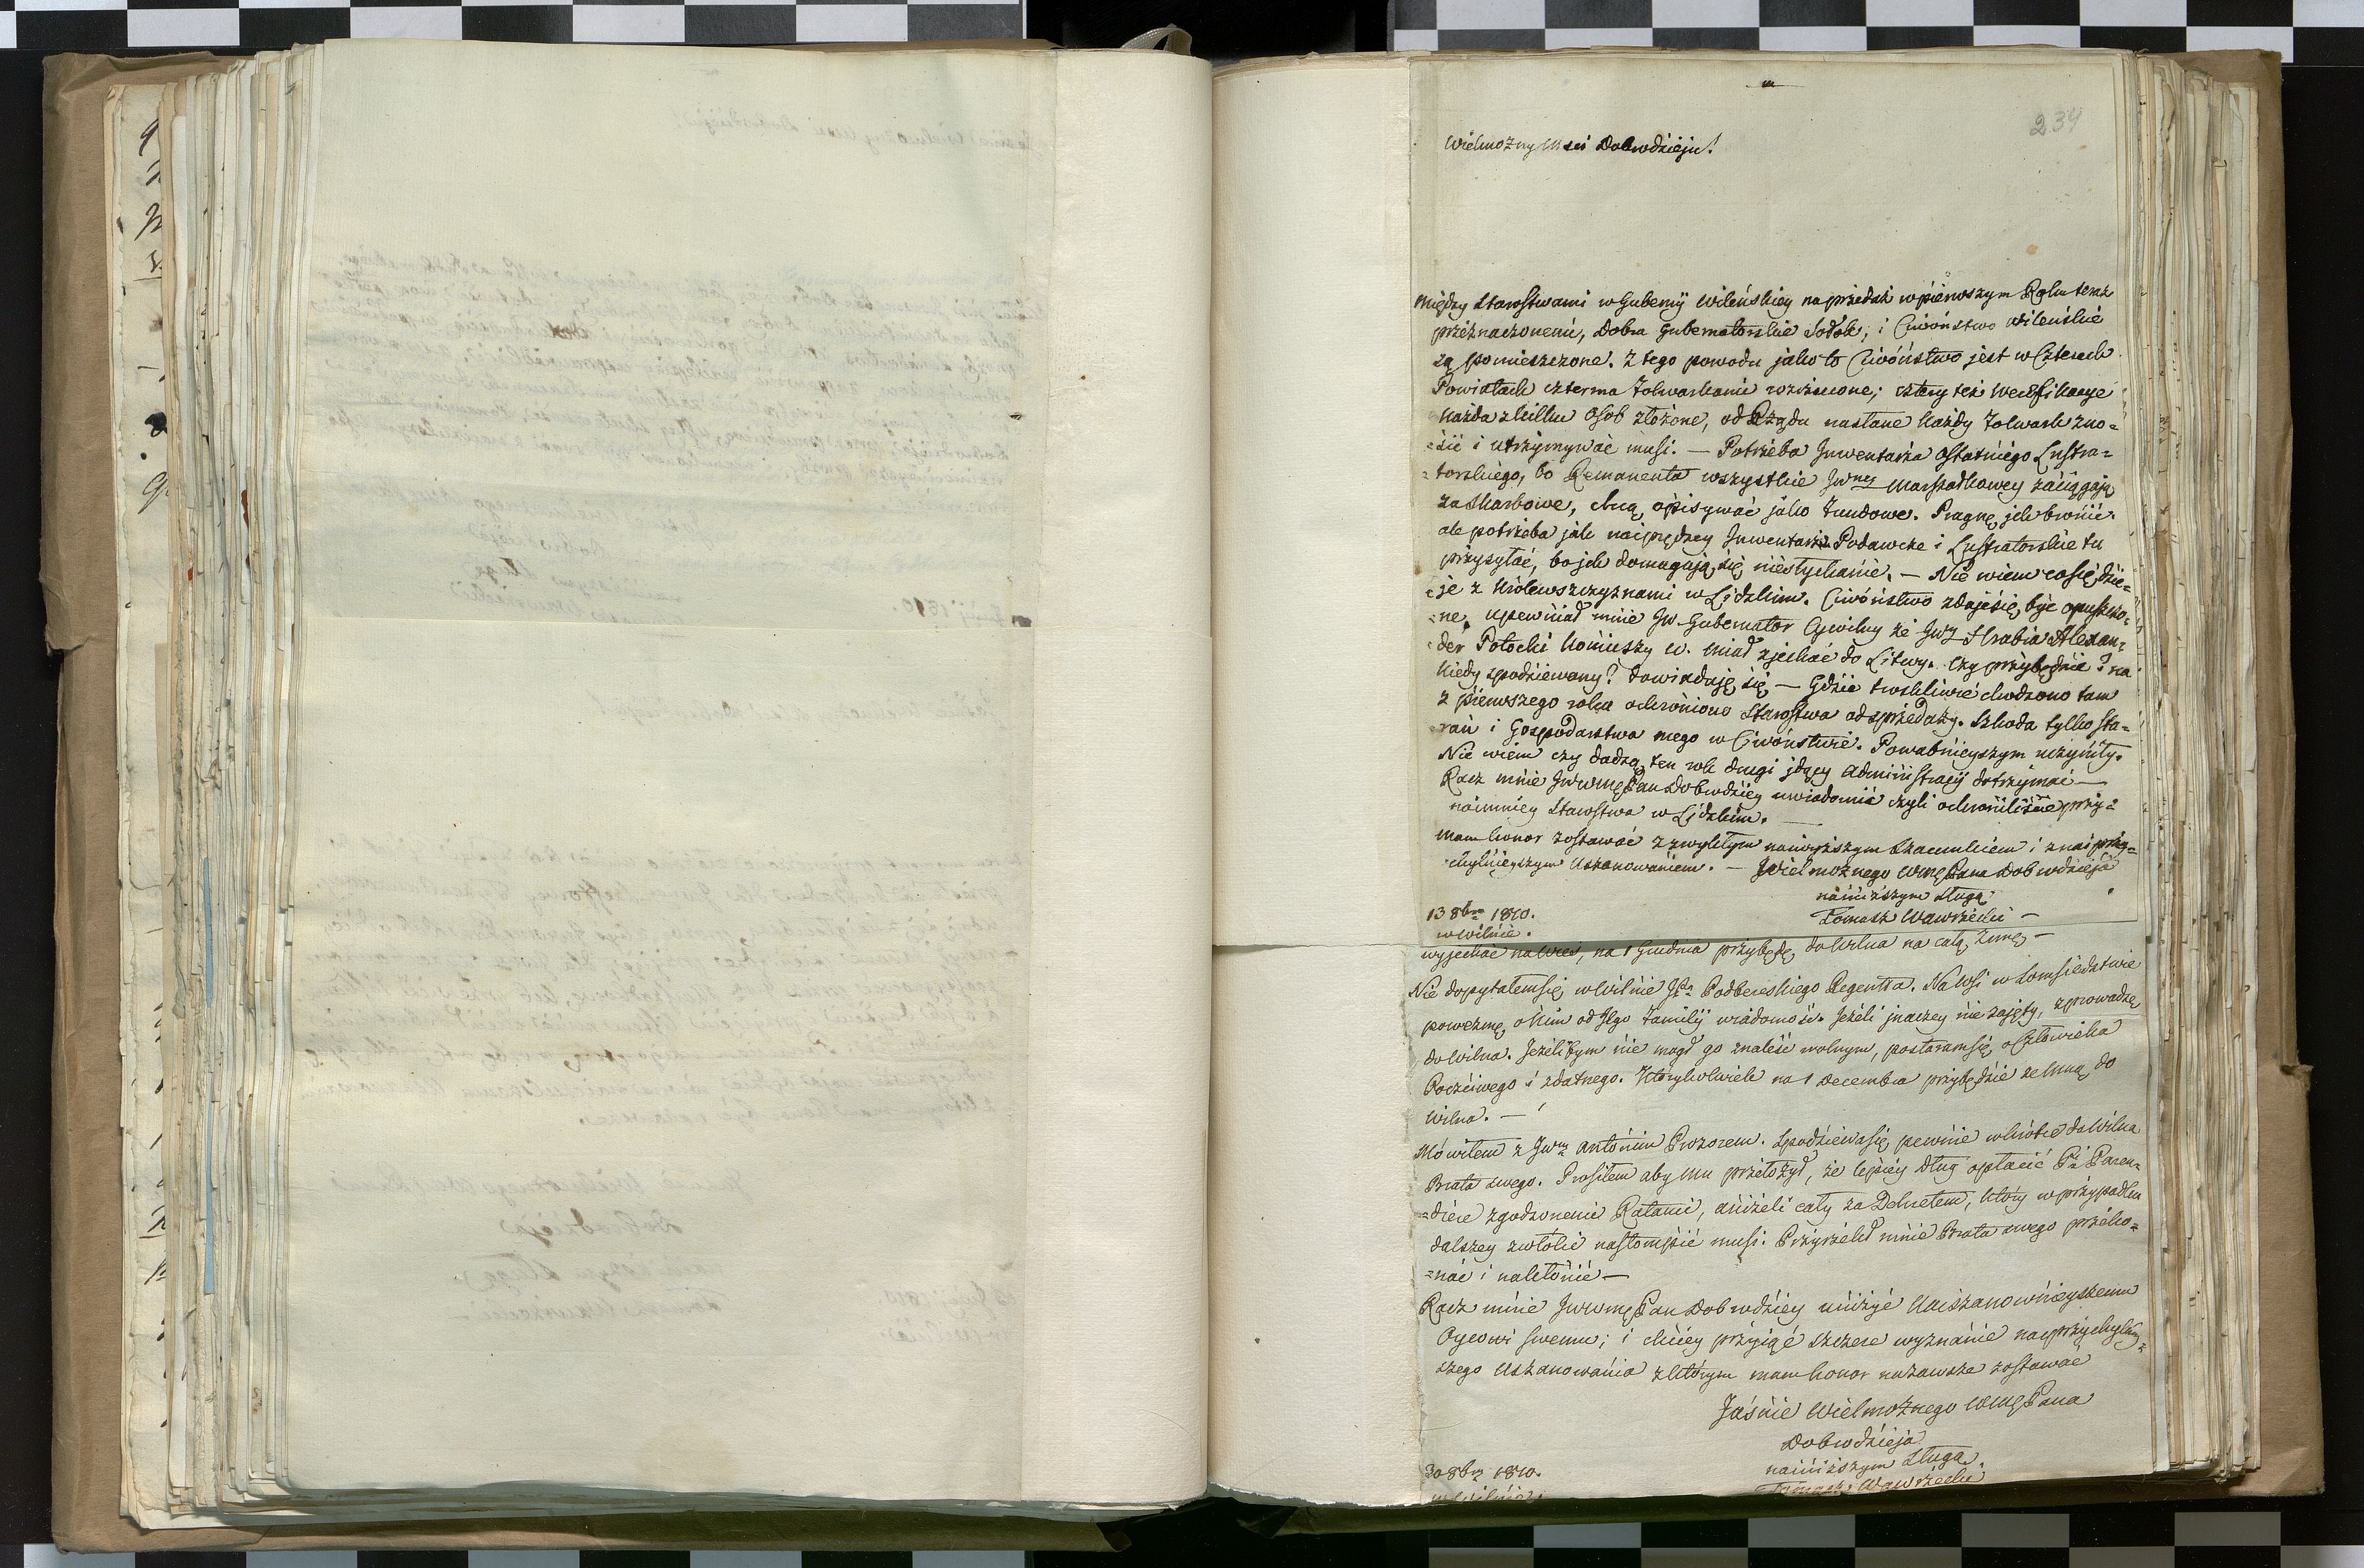 234
Wielmożny Mści Dobrodzieju!
Między Starostwami w Gubernij Wileńskiey na przedaż w pierwszym Roku teraz
przeznaczonemi, Dobra Gubernatorskie Sodok, i Ciwoństwo Wileńskie
są pomieszczone. Z tego powodu jako to Ciwoństwo jest w Czterech
Powiatach czterma Folwarkami rozrzucone; cztery też Weryfikacye
każda z kilku Osob złożone, od Rządu nasłane każdy Folwark zno=
=sić i utrzymywać musi. — Potrzeba Inwentarza Ostatniego Lustra=
=torskiego, bo Remanenta wszystkie Jwney Marszałkowey zaciągają
za Skarbowe, chcą opisywać jako Fundowe. Pragnę jch bronić
ale potrzeba jak naiprędzey Inwentarze Podawcze i Lustratorskie tu
przysyłać, bo jch domagają się niesłychanie. — Nie wiem co się dzie=
=je z Krolewszczyznami w Lidzkim. Ciwoństwo zdaje się być opuszczo=
=ne, upewniał mnie Jw Gubernator Cywilny że Jwy Hrabia Alexan=
=der Potocki Koniuszy w. miał zjechać do Litwy. Czy przybędzie? na
kiedy spodziewany? dowiaduję się — Gdzie troskliwie chodzono tam
z pierwszego roku ochroniono Starostwa od sprzedaży. Szkoda tylko sta=
=rań i Gospodarstwa mego w Ciwoństwie. Powabnieyszym uczyniły.
Nie wiem czy dadzą ten rok drugi jdący Administracij dotrzymać —
Racz mnie JwWmę Pan Dobrodziey uwiadomić czyli ochroniliście przy=
naimniey Starostwa w Lidzkim. —
Mam honor zostawać z zwykłym naiwyższym Szacunkiem i z nai przy=
=chylnieyszym Uszanowaniem. — JWielmożnego WMę Pana Dobrodzieja
nainiższym Sługą
Tomasz Wawrzecki —
13 8bra 1810.
w Wilnie.
wyjechać na Wieś, na 1 Grudnia przybędę do Wilna na całą zimę —
Nie dopytałem się w Wilnie JPa Podbereskiego Regenta. Na Wsi w Somsiedztwie
powezmę o Nim od Jego Familij wiadomość. Jeżeli jnaczey nie zajęty, sprowadzę
do Wilna. Jeżelibym nie mogł go znaleść wolnym, postaram się o Człowieka
Poczciwego i zdatnego. Ktorykolwiek na 1 Decembra przybędzie ze Mną do
Wilna. —
Mówiłem z Jwm Antonim Prozorem. Spodziewa się pewnie wkrótce do Wilna
Brata swego. Prosiłem aby Mu przełożył, że lepiey Dług opłacić
zgodzonemi Ratami, aniżeli cały za Dekretem, który w przypadku
dalszey zwłoki nastompić musi. Przyrzekł mnie Brata swego przeko=
=nać i nakłonić —
Racz mnie JwWmę Pan Dobrodziey uniżyć Naiszanownieyszemu
Oycowi Swemu; i chciey przyiąć szczere wyznanie nayprzychylniey=
szego Uszanowania z którym mam honor na zawsze zostawać
Jaśnie Wielmożnego WMę Pana
Dobrodzieja
nainiższym Sługą.
Tomasz Wawrzecki
30 8bra 1810.
w Wilnie.